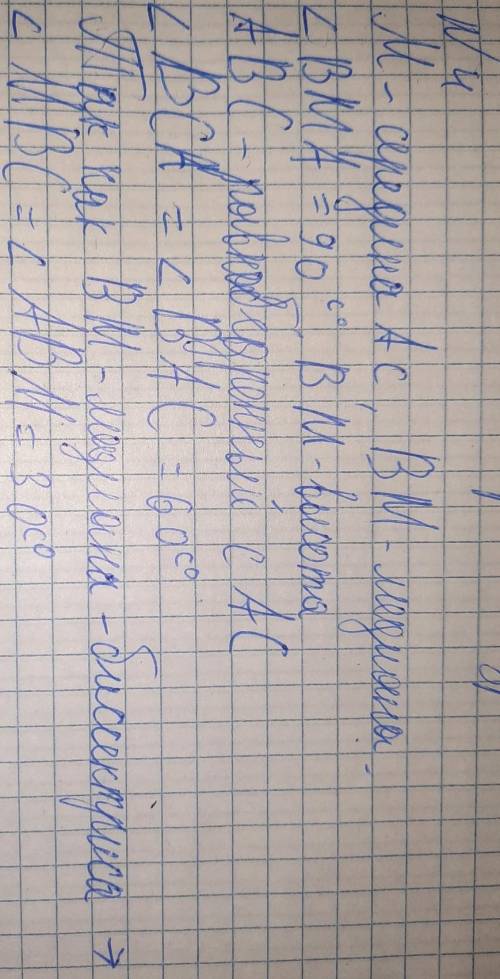 N 4
М - середина АС, ВМ - медианы.
∠ ВМА = 90 c° ВМ - высота
АВС - равнобедренный с АС
∠ ВСА = ∠ ВАС = 60 c°
Так как ВМ - медиана - биссектриса →
∠ МВС = ∠ АВМ = 30 c°